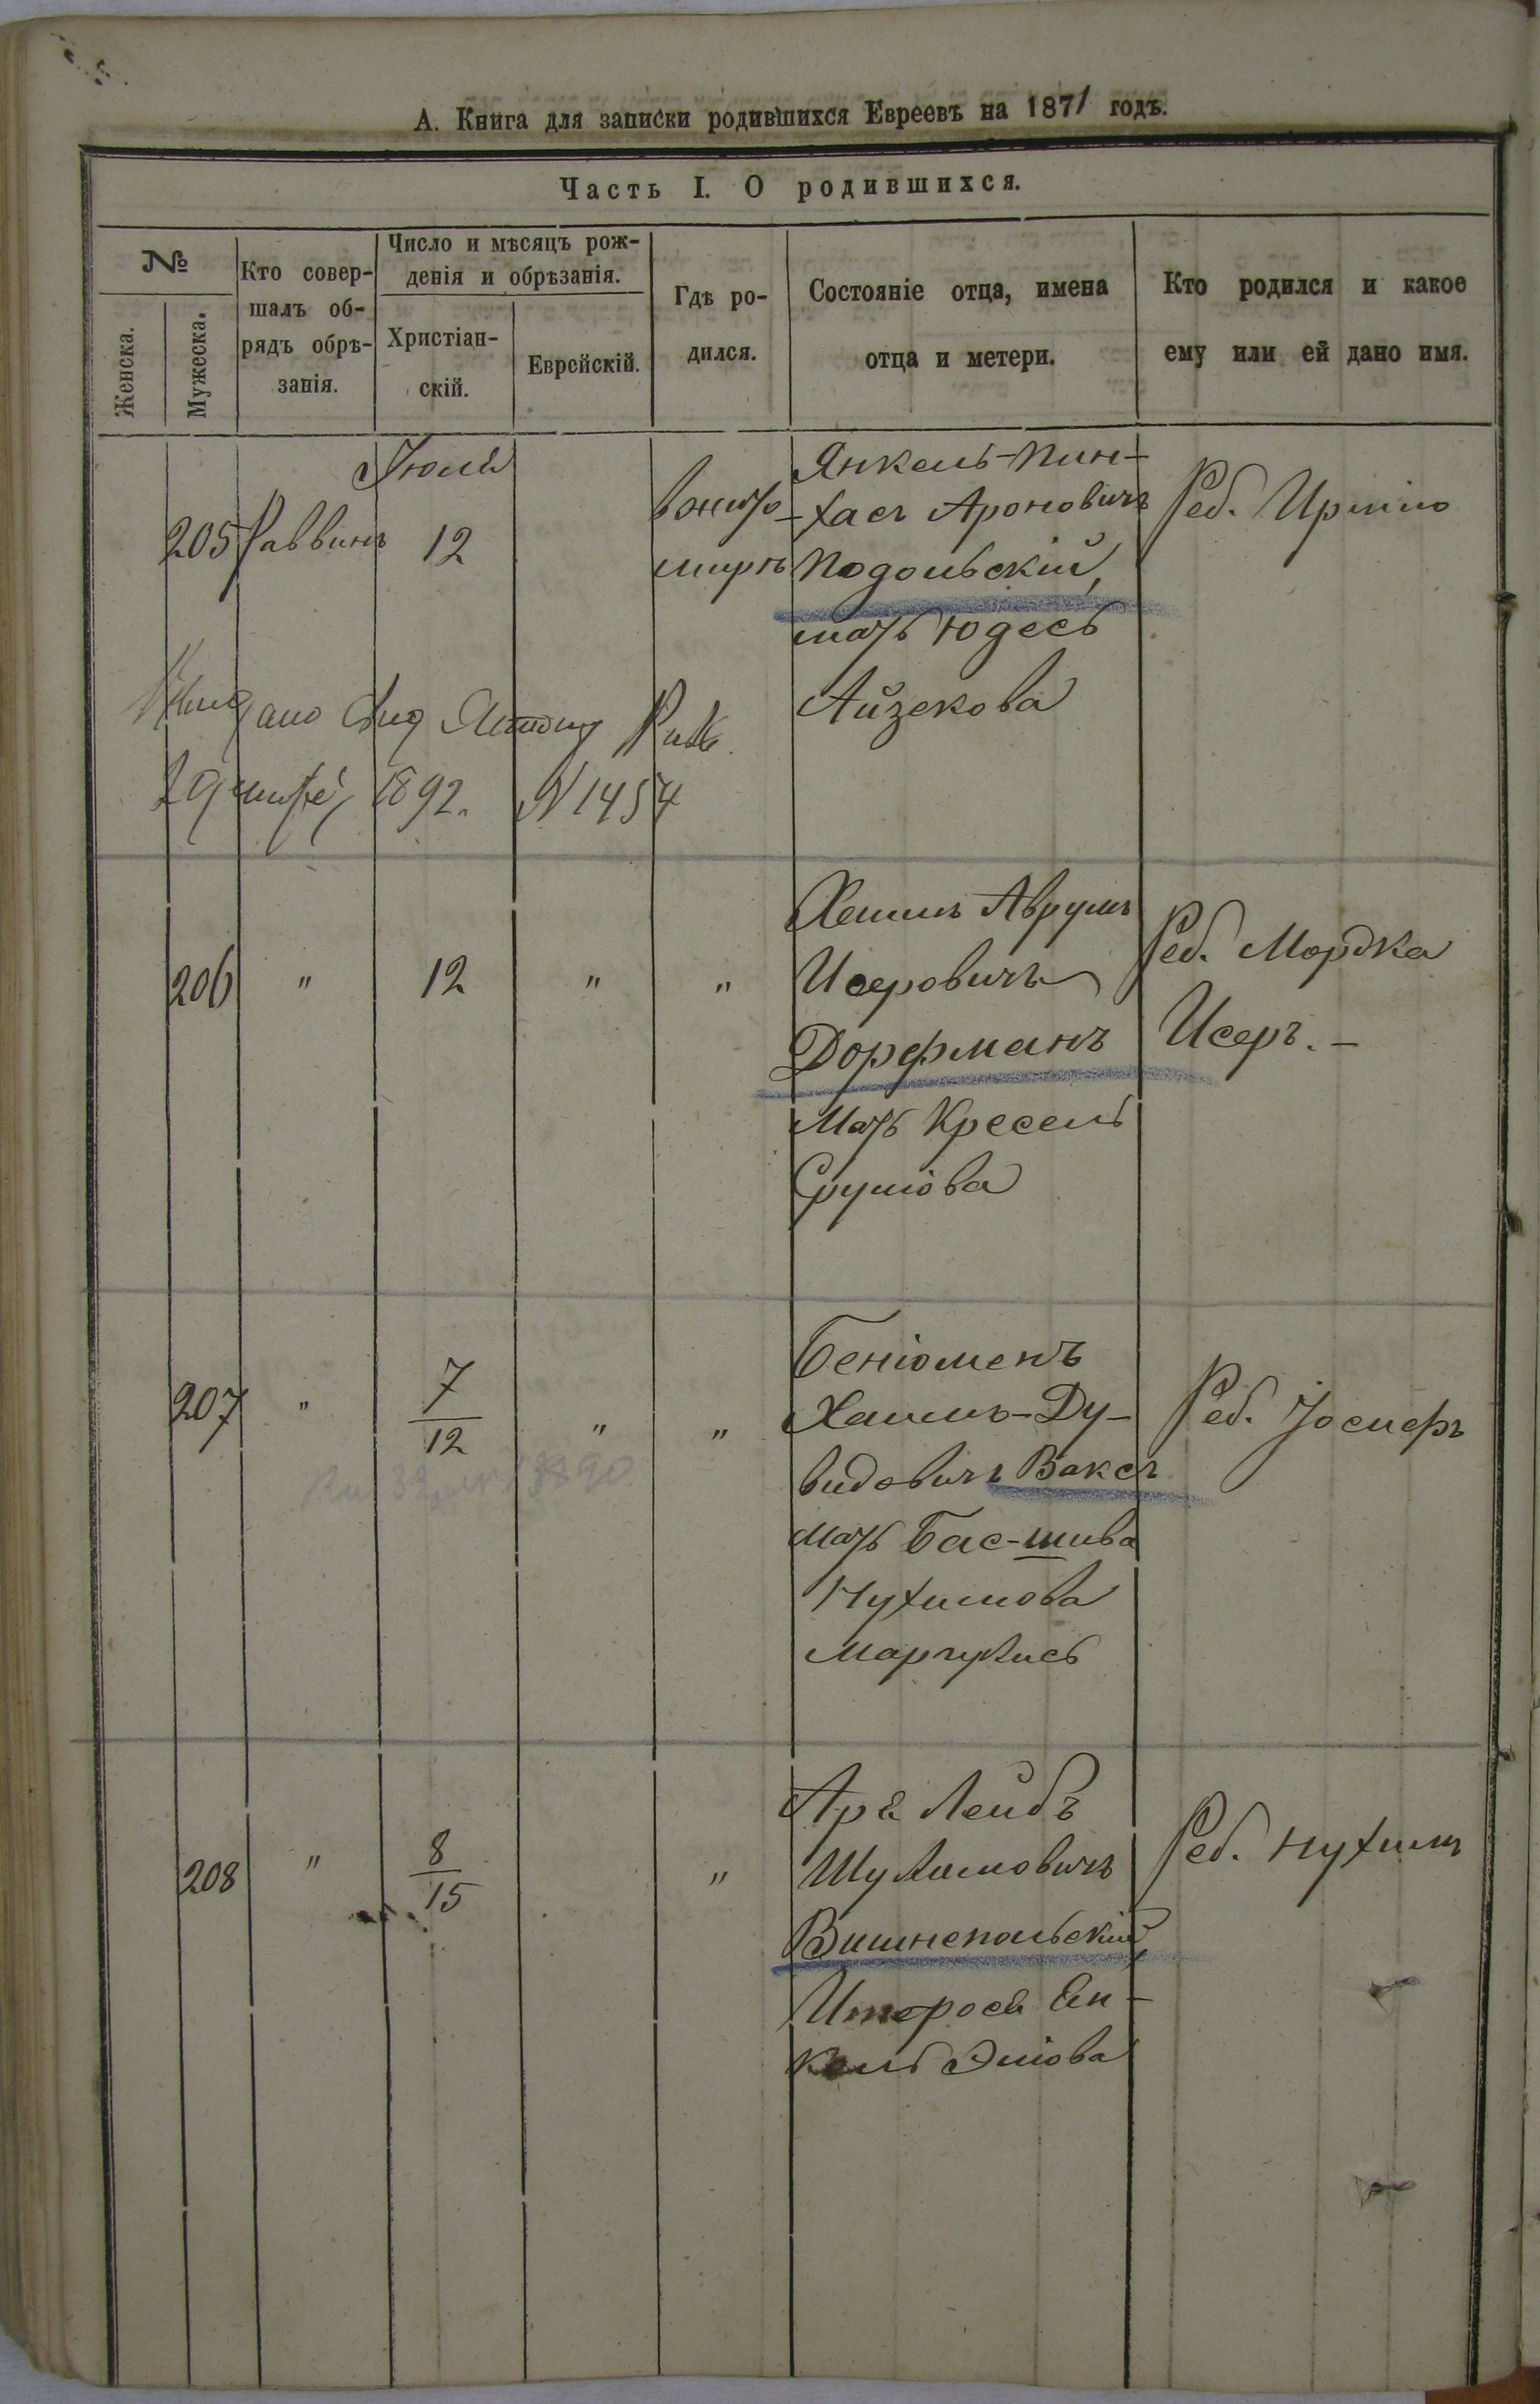 А. Книга для записки родившихся Евреевъ на 1871 годъ.
Часть I. О родившихся.
№
Женска.
Мужеска.
Кто совер-
шалъ об-
рядъ обрѣ-
занія.
Число и мѣсяцъ рож-
денія и обрѣзанія.
Христіан-
скій.
Еврейскій.
Гдѣ ро-
дился.
Состояніе отца, имена
отца и метери.
Кто родился и какое
ему или ей дано имя.
Іюль
205 Раввинъ 12
в Жито-
мирѣ
Янкель-Пин-
хасъ Ароновичъ
Подольскій,
мать Юдесь
Айзекова
Реб. Ирмію
1892. N 1454
206 " 12 " "
Хаимъ Аврумъ
Исеровичъ
Дорфманъ
Мать Кресель
Срулiова
Реб. Мордка
Исеръ. -
207 " 7/12 " "
Беніоменъ
Хаимъ-Ду-
видовичъ Ваксъ
мать Бас-шива
Нухимова
Маргулисъ
Реб. Іосиеръ
1890
208 " 8/15 "
Арѣ Лейбъ
Шулимовичъ
Вишнепольскій,
Реб. Нухимъ